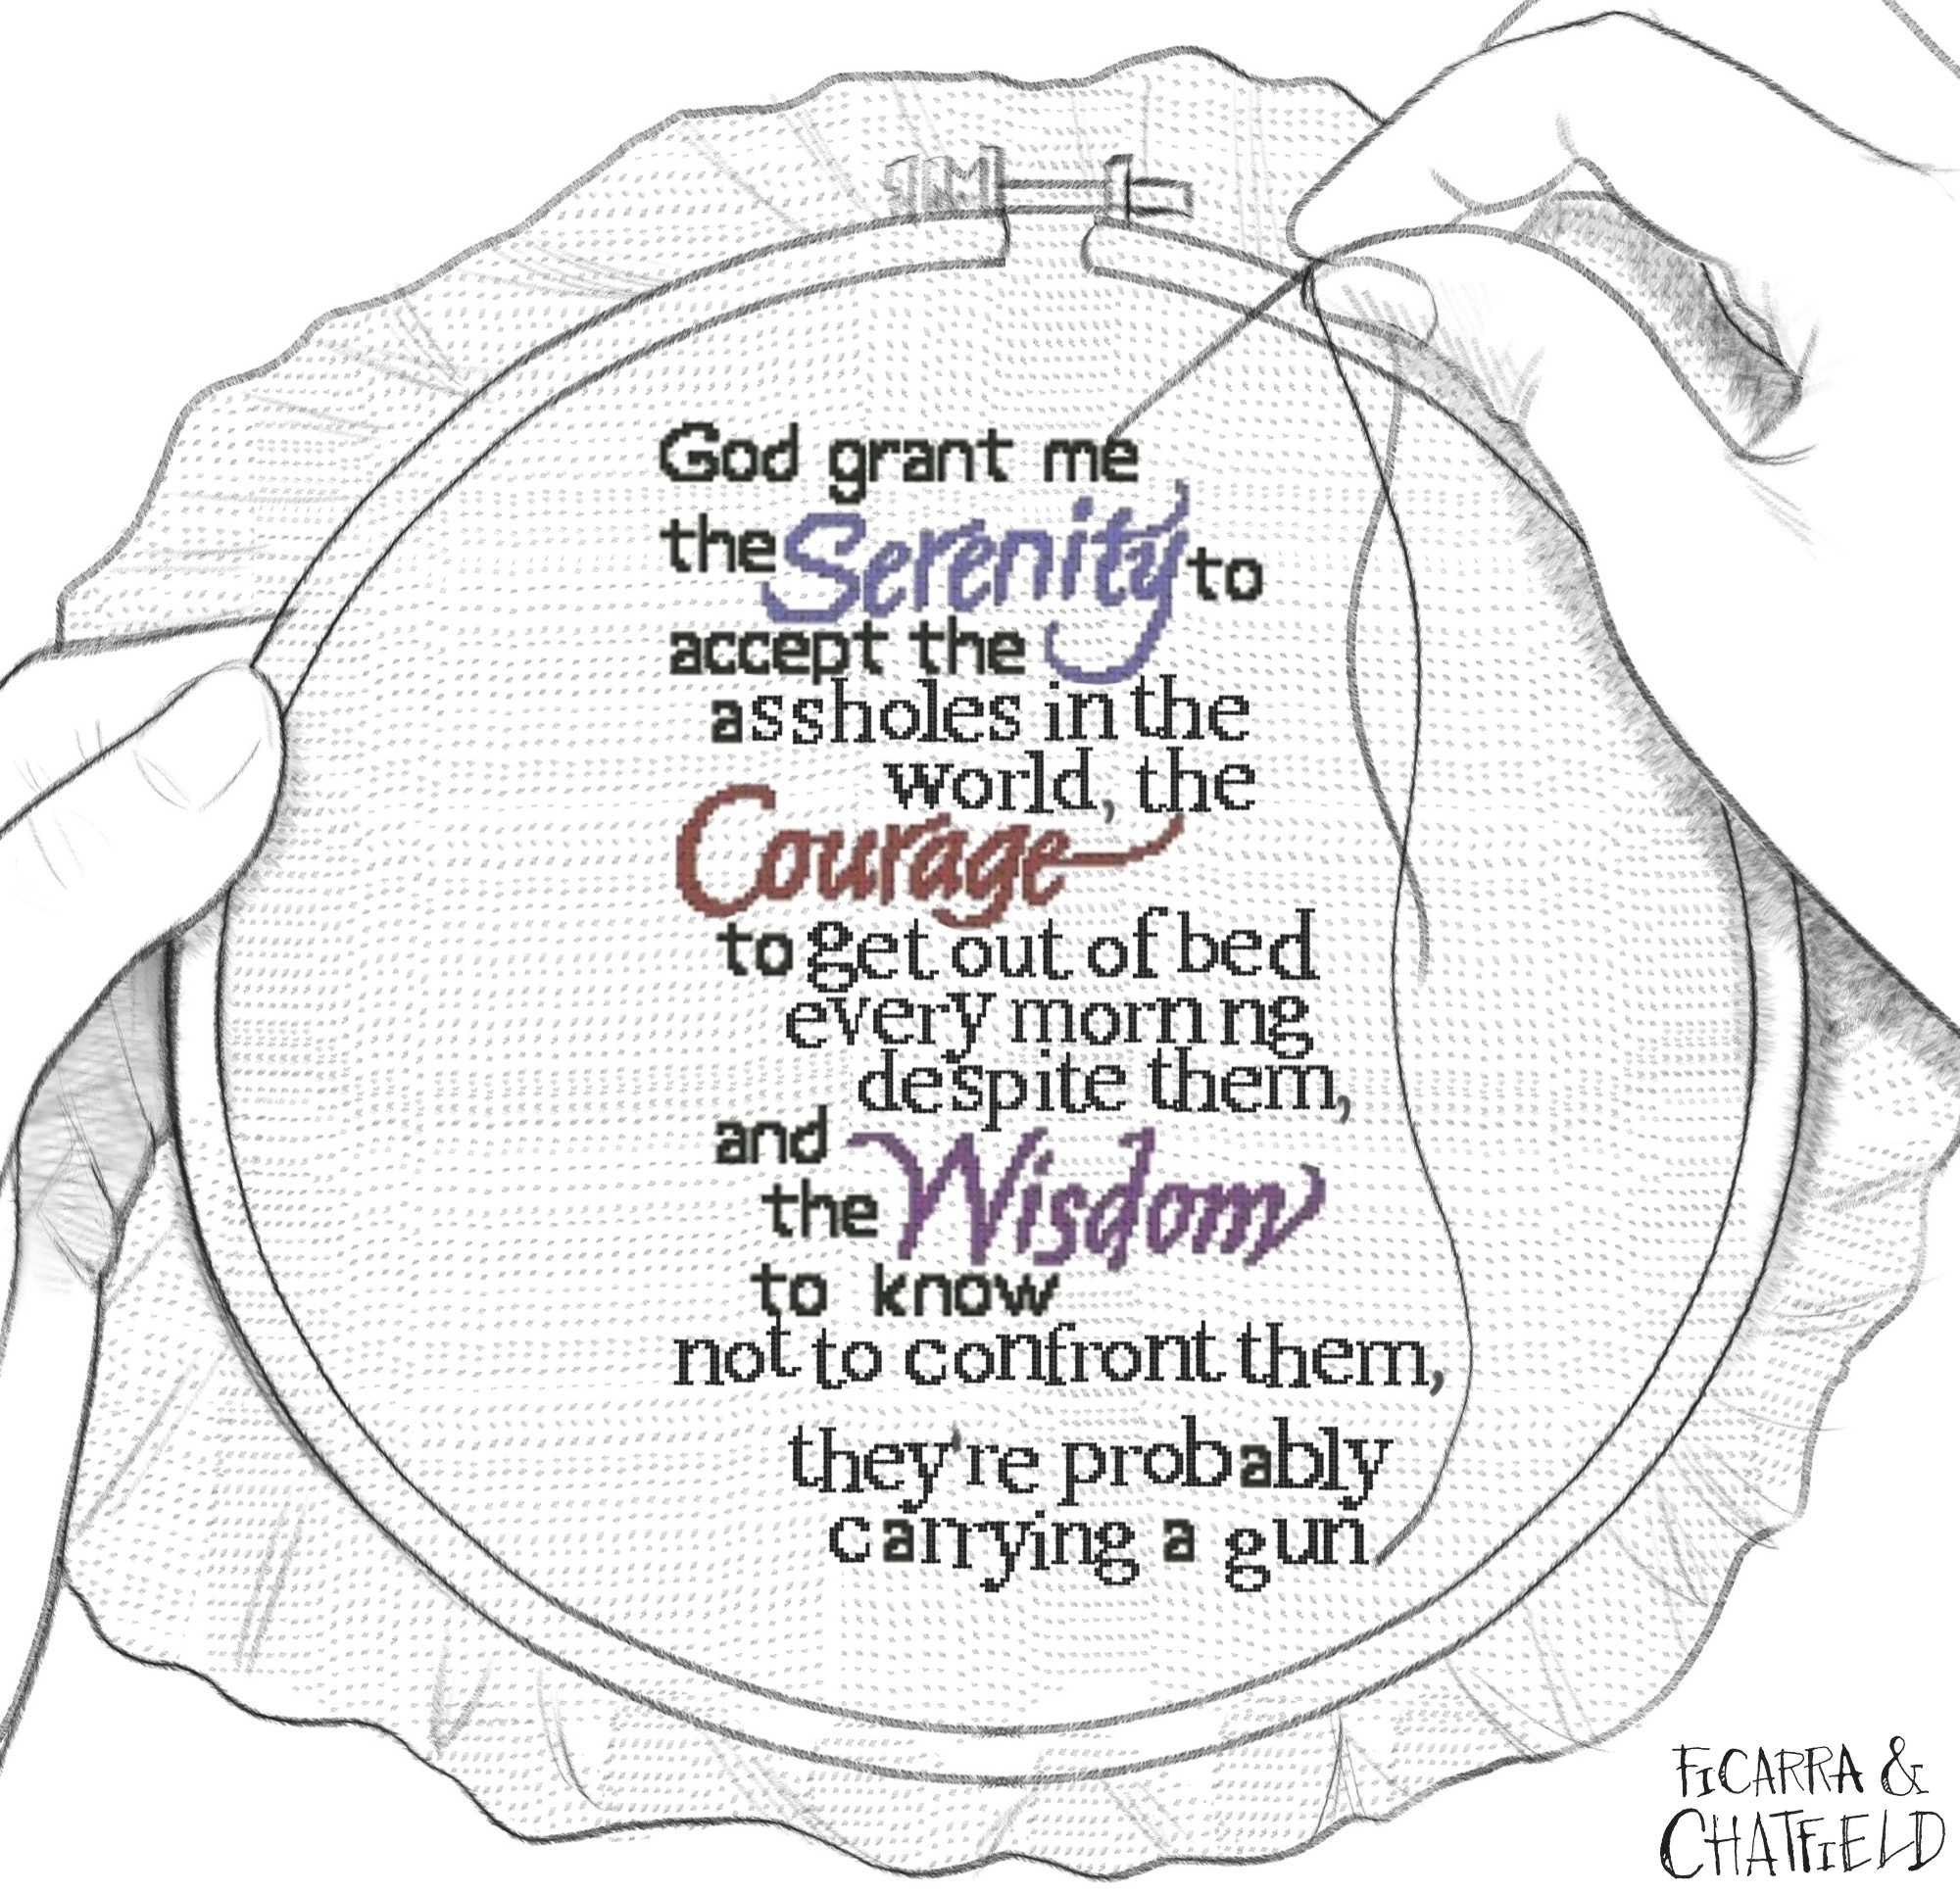 God grant me
the Serenity to
accept the
assholes in the
world, the
Courage
to get out of bed
every morn ng
despite them,
and
the Wisdom
to know
not to confront them,
they're probably
carrying a gun
FiCARRA &
CHATFiELD